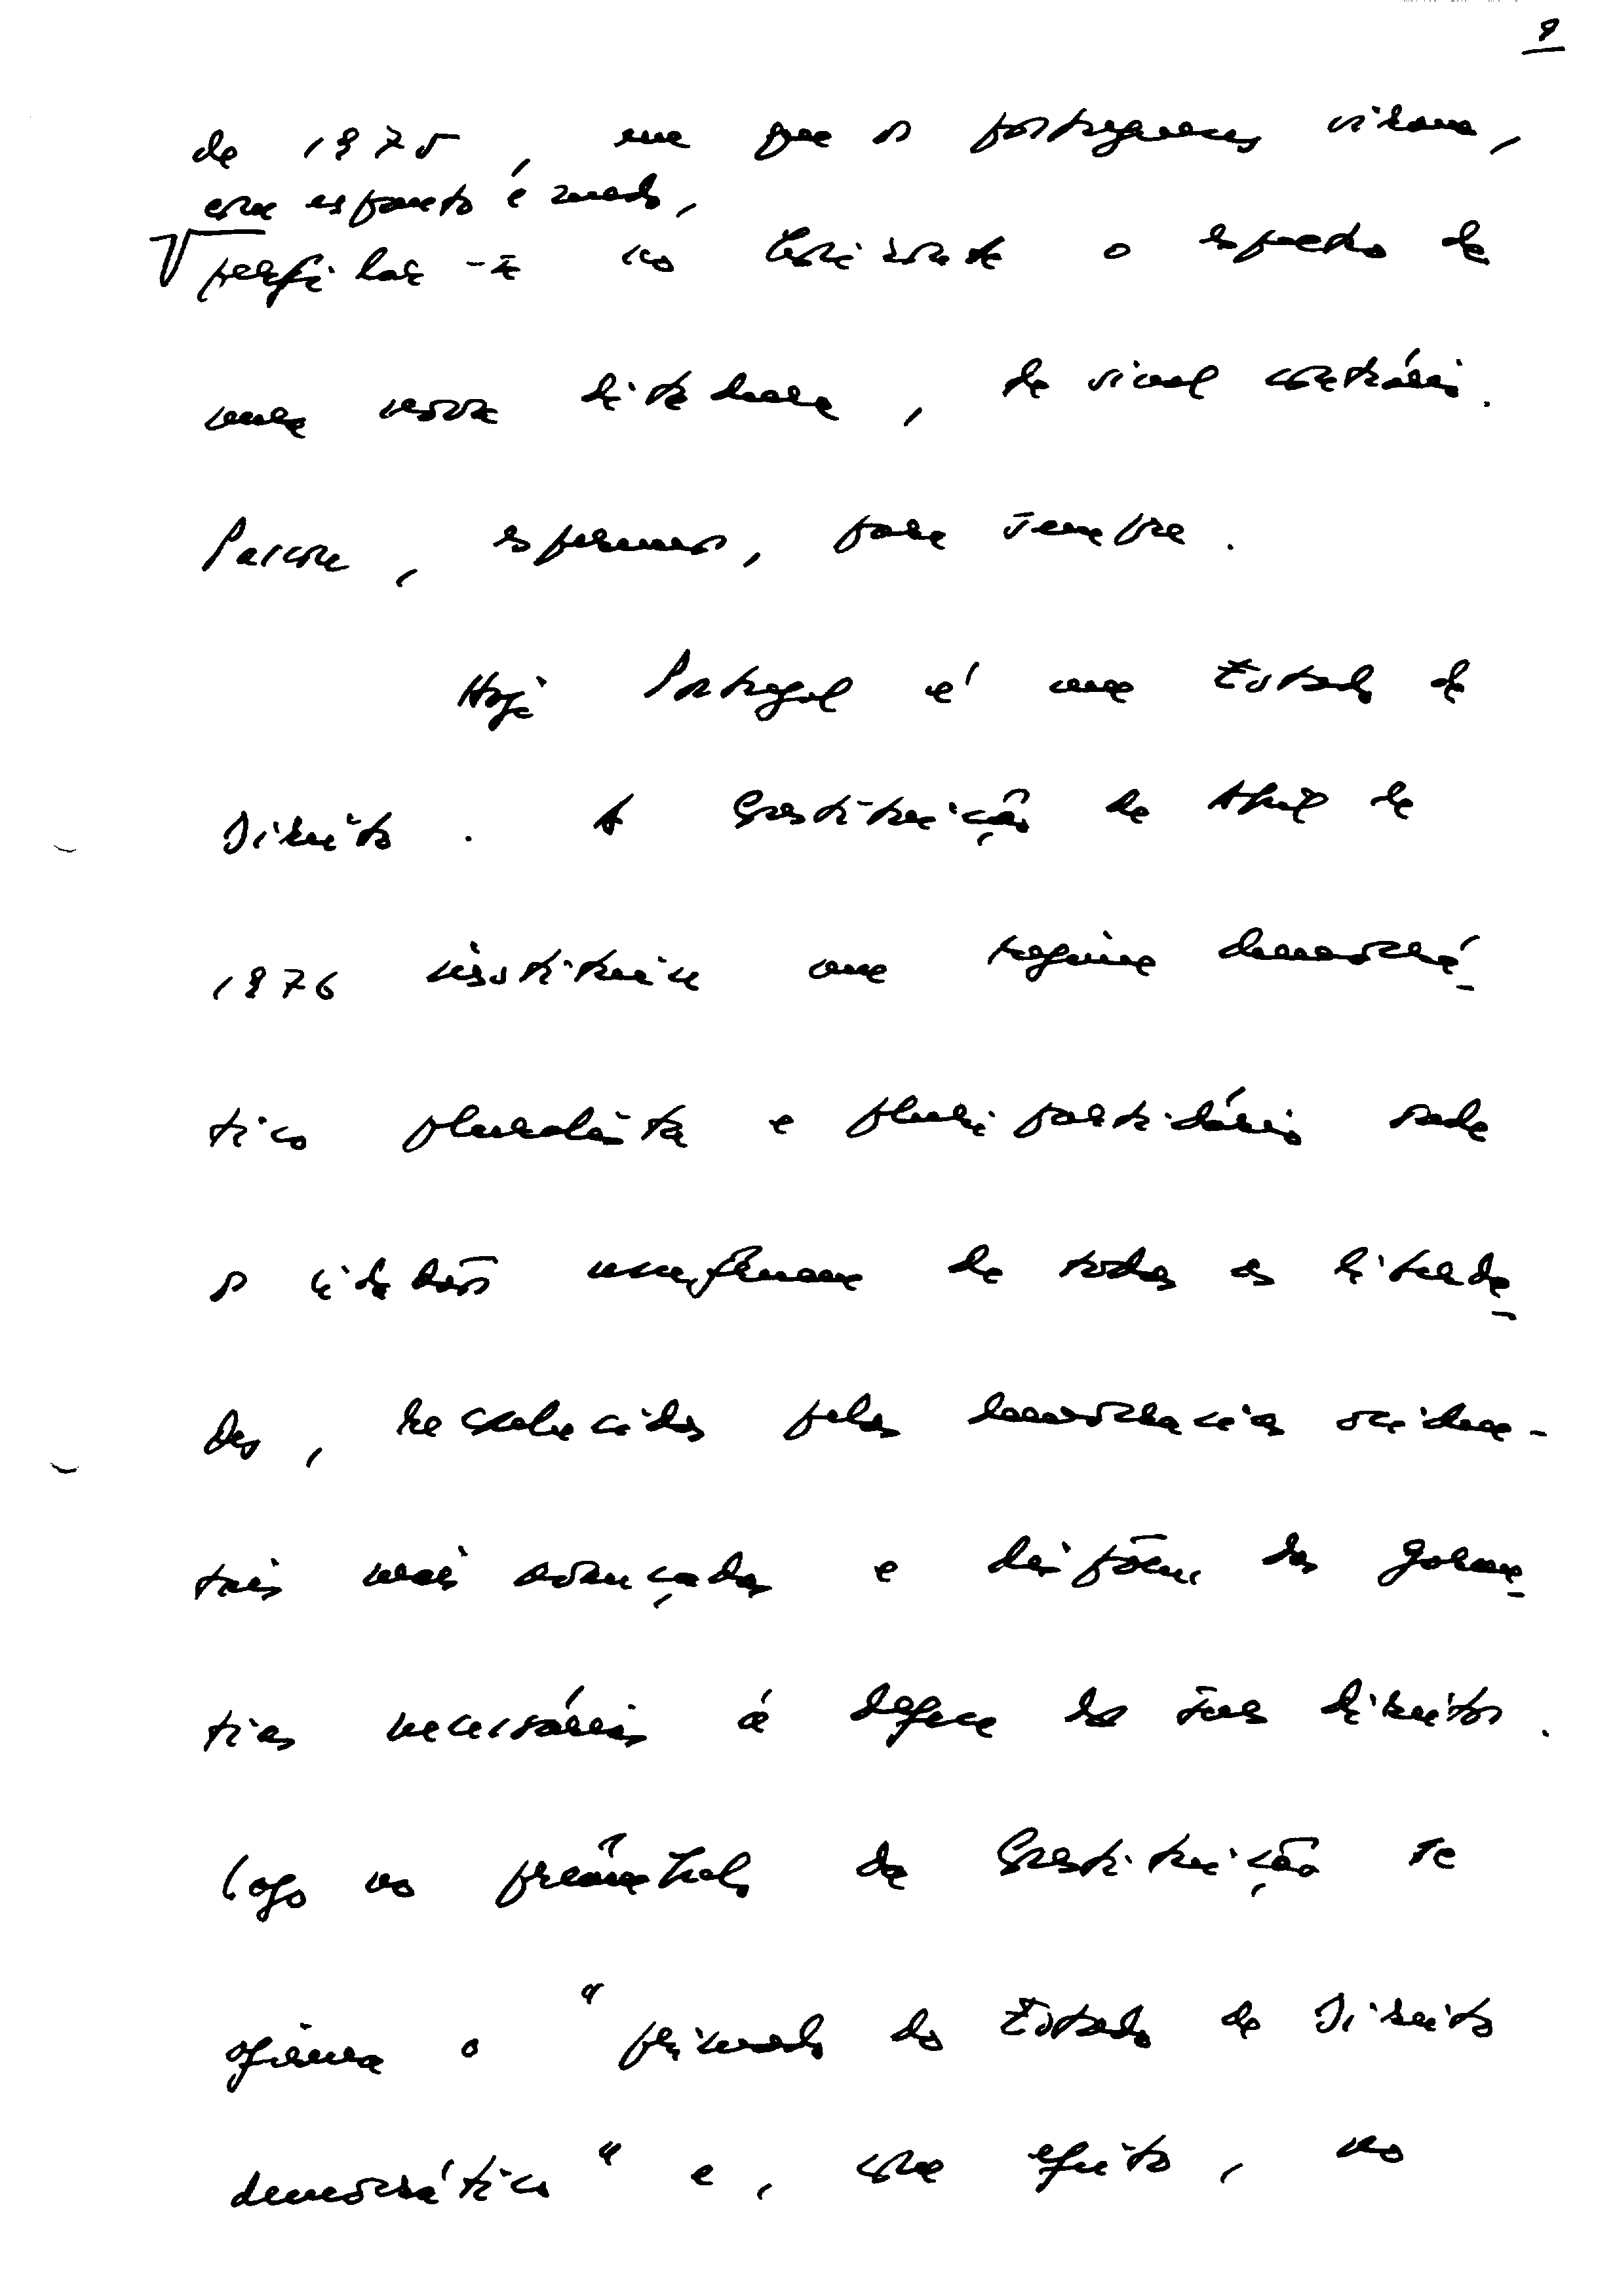 9
de 1975, em que os portugueses viram,
com espanto e medo,
perfilar-se no horizonte o espectro de
uma nova ditadura, de sinal contrário.
Passou, esperemos, para sempre.
Hoje Portugal é um Estado de
Direito. A Constituição de Abril de
1976 instituiu um regime democrá-
tico pluralista e pluripartidário onde
os cidadãos usufruem de todas as liberda-
des, reconhecidas pelas democracias ociden-
tais mais avançadas e dispõem das garan-
tias necessárias à defesa dos seus direitos.
Logo no preâmbulo da Constituição se
afirma o "primado do Estado de Direito
democrático" e, com efeito, no